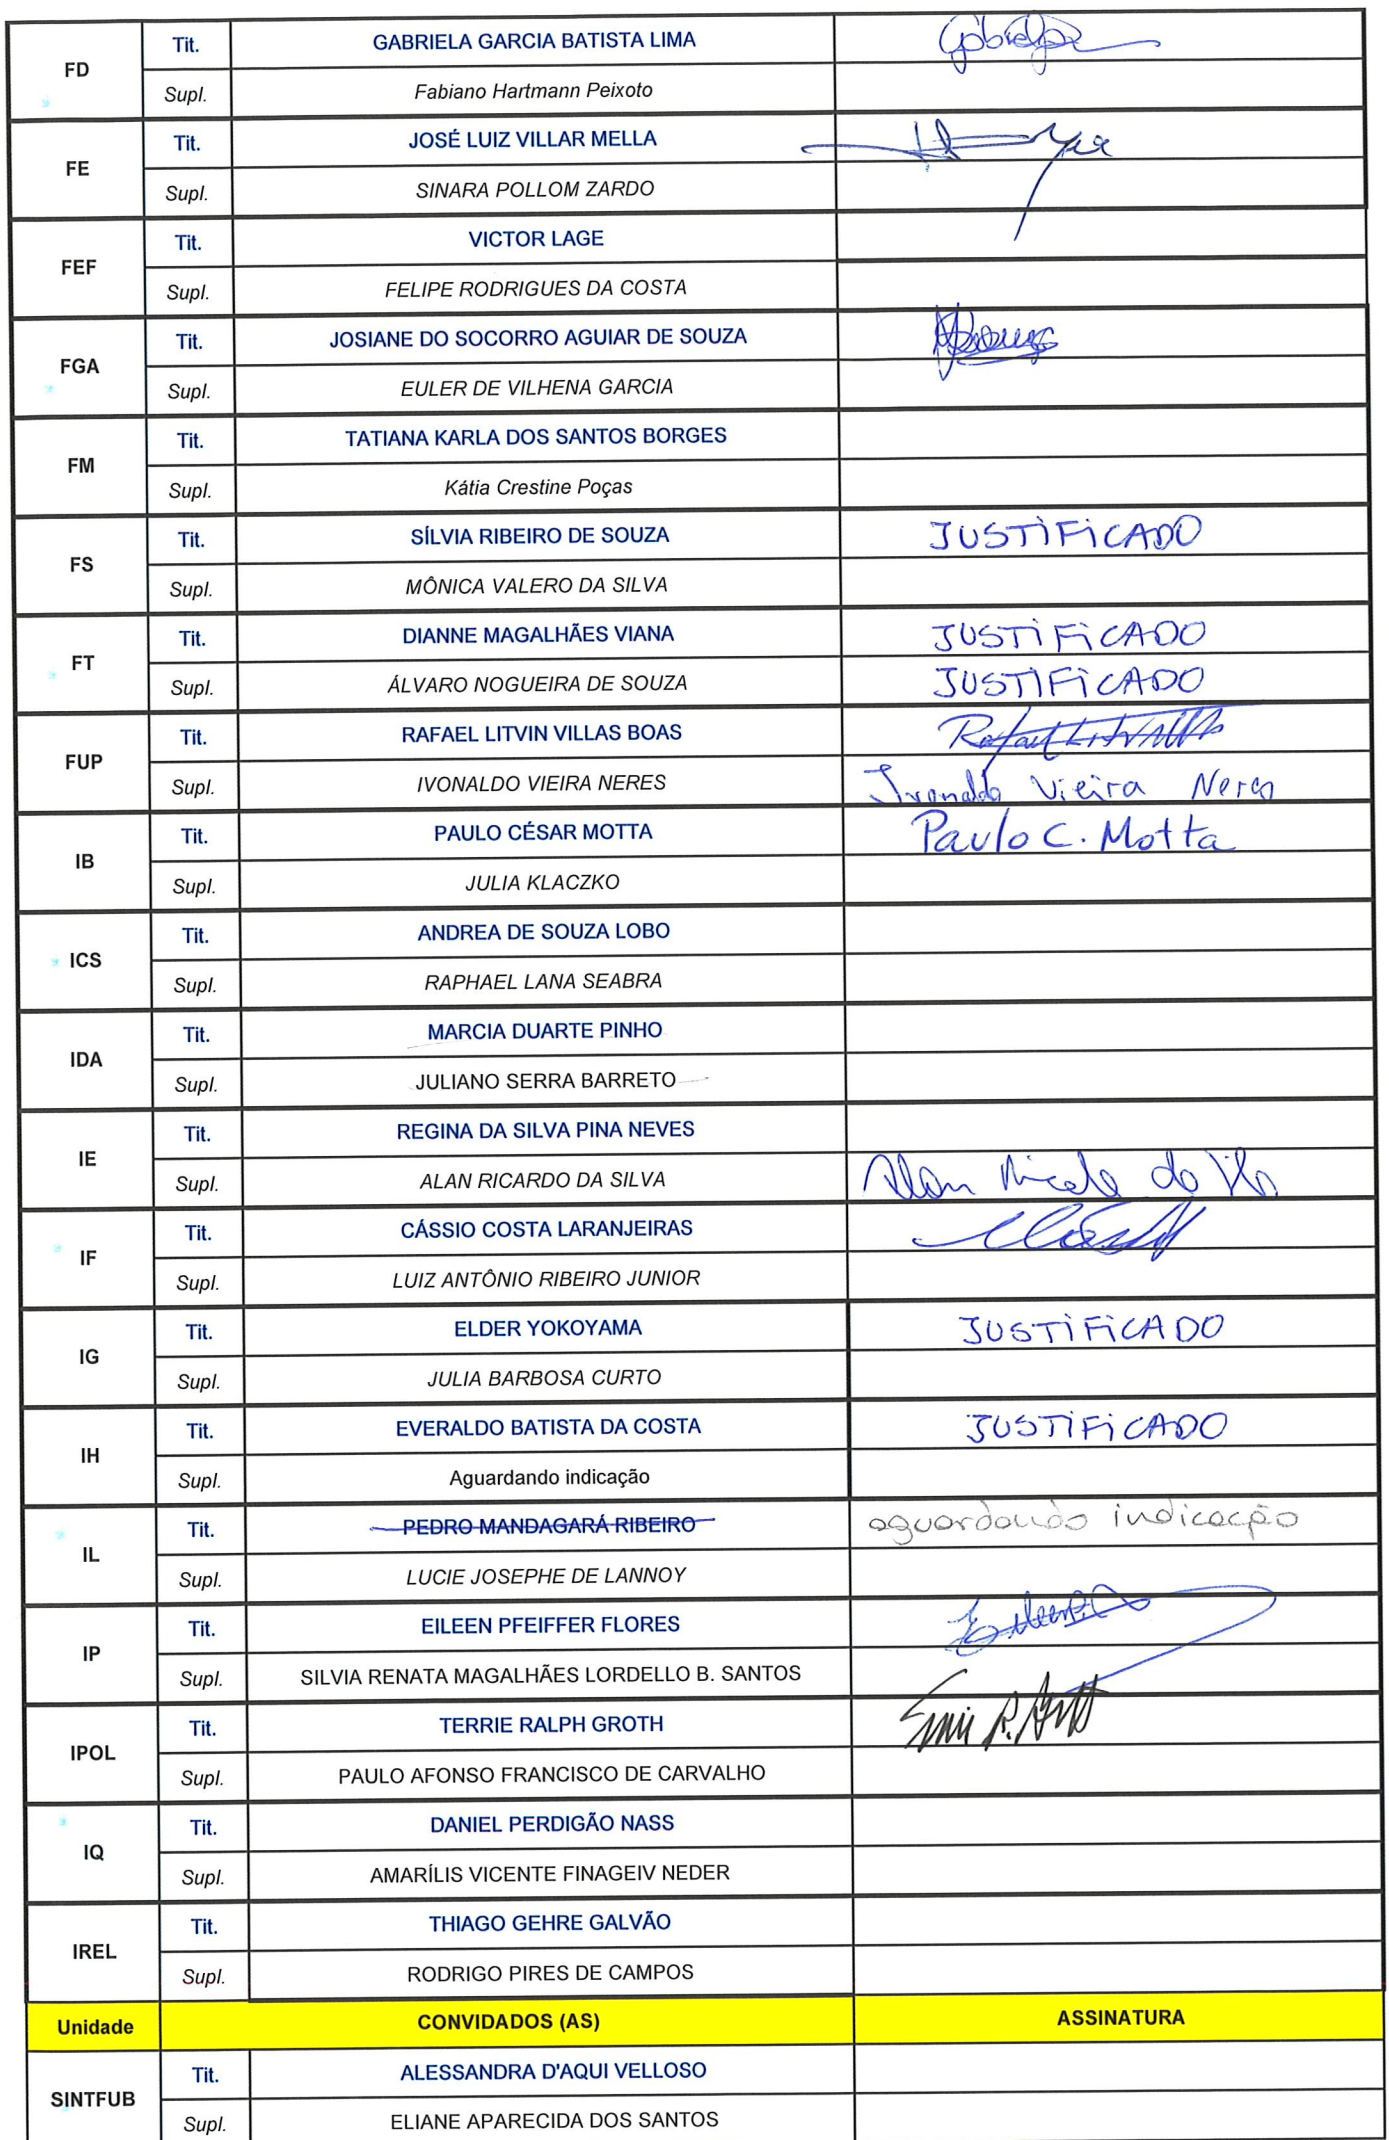 FD
Tit. GABRIELA GARCIA BATISTA LIMA
Supl. Fabiano Hartmann Peixoto
FE
Tit. JOSÉ LUIZ VILLAR MELLA
Supl. SINARA POLLOM ZARDO
FEF
Tit. VICTOR LAGE
Supl. FELIPE RODRIGUES DA COSTA
FGA
Tit. JOSIANE DO SOCORRO AGUIAR DE SOUZA
Supl. EULER DE VILHENA GARCIA
FM
Tit. TATIANA KARLA DOS SANTOS BORGES
Supl. Kátia Crestine Poças
FS
Tit. SÍLVIA RIBEIRO DE SOUZA JUSTIFICADO
Supl. MÔNICA VALERO DA SILVA
FT
Tit. DIANNE MAGALHÃES VIANA JUSTIFICADO
Supl. ÁLVARO NOGUEIRA DE SOUZA JUSTIFICADO
FUP
Tit. RAFAEL LITVIN VILLAS BOAS
Supl. IVONALDO VIEIRA NERES Ivonaldo Vieira Neres
IB
Tit. PAULO CÉSAR MOTTA Paulo C. Motta
Supl. JULIA KLACZKO
ICS
Tit. ANDREA DE SOUZA LOBO
Supl. RAPHAEL LANA SEABRA
IDA
Tit. MARCIA DUARTE PINHO
Supl. JULIANO SERRA BARRETO
IE
Tit. REGINA DA SILVA PINA NEVES
Supl. ALAN RICARDO DA SILVA
IF
Tit. CÁSSIO COSTA LARANJEIRAS
Supl. LUIZ ANTÔNIO RIBEIRO JUNIOR
IG
Tit. ELDER YOKOYAMA JUSTIFICADO
Supl. JULIA BARBOSA CURTO
IH
Tit. EVERALDO BATISTA DA COSTA JUSTIFICADO
Supl. Aguardando indicação
IL
Tit. PEDRO MANDAGARÁ RIBEIRO aguardando indicação
Supl. LUCIE JOSEPHE DE LANNOY
IP
Tit. EILEEN PFEIFFER FLORES
Supl. SILVIA RENATA MAGALHÃES LORDELLO B. SANTOS
IPOL
Tit. TERRIE RALPH GROTH
Supl. PAULO AFONSO FRANCISCO DE CARVALHO
IQ
Tit. DANIEL PERDIGÃO NASS
Supl. AMARÍLIS VICENTE FINAGEIV NEDER
IREL
Tit. THIAGO GEHRE GALVÃO
Supl. RODRIGO PIRES DE CAMPOS
Unidade CONVIDADOS (AS) ASSINATURA
SINTFUB
Tit. ALESSANDRA D'AQUI VELLOSO
Supl. ELIANE APARECIDA DOS SANTOS